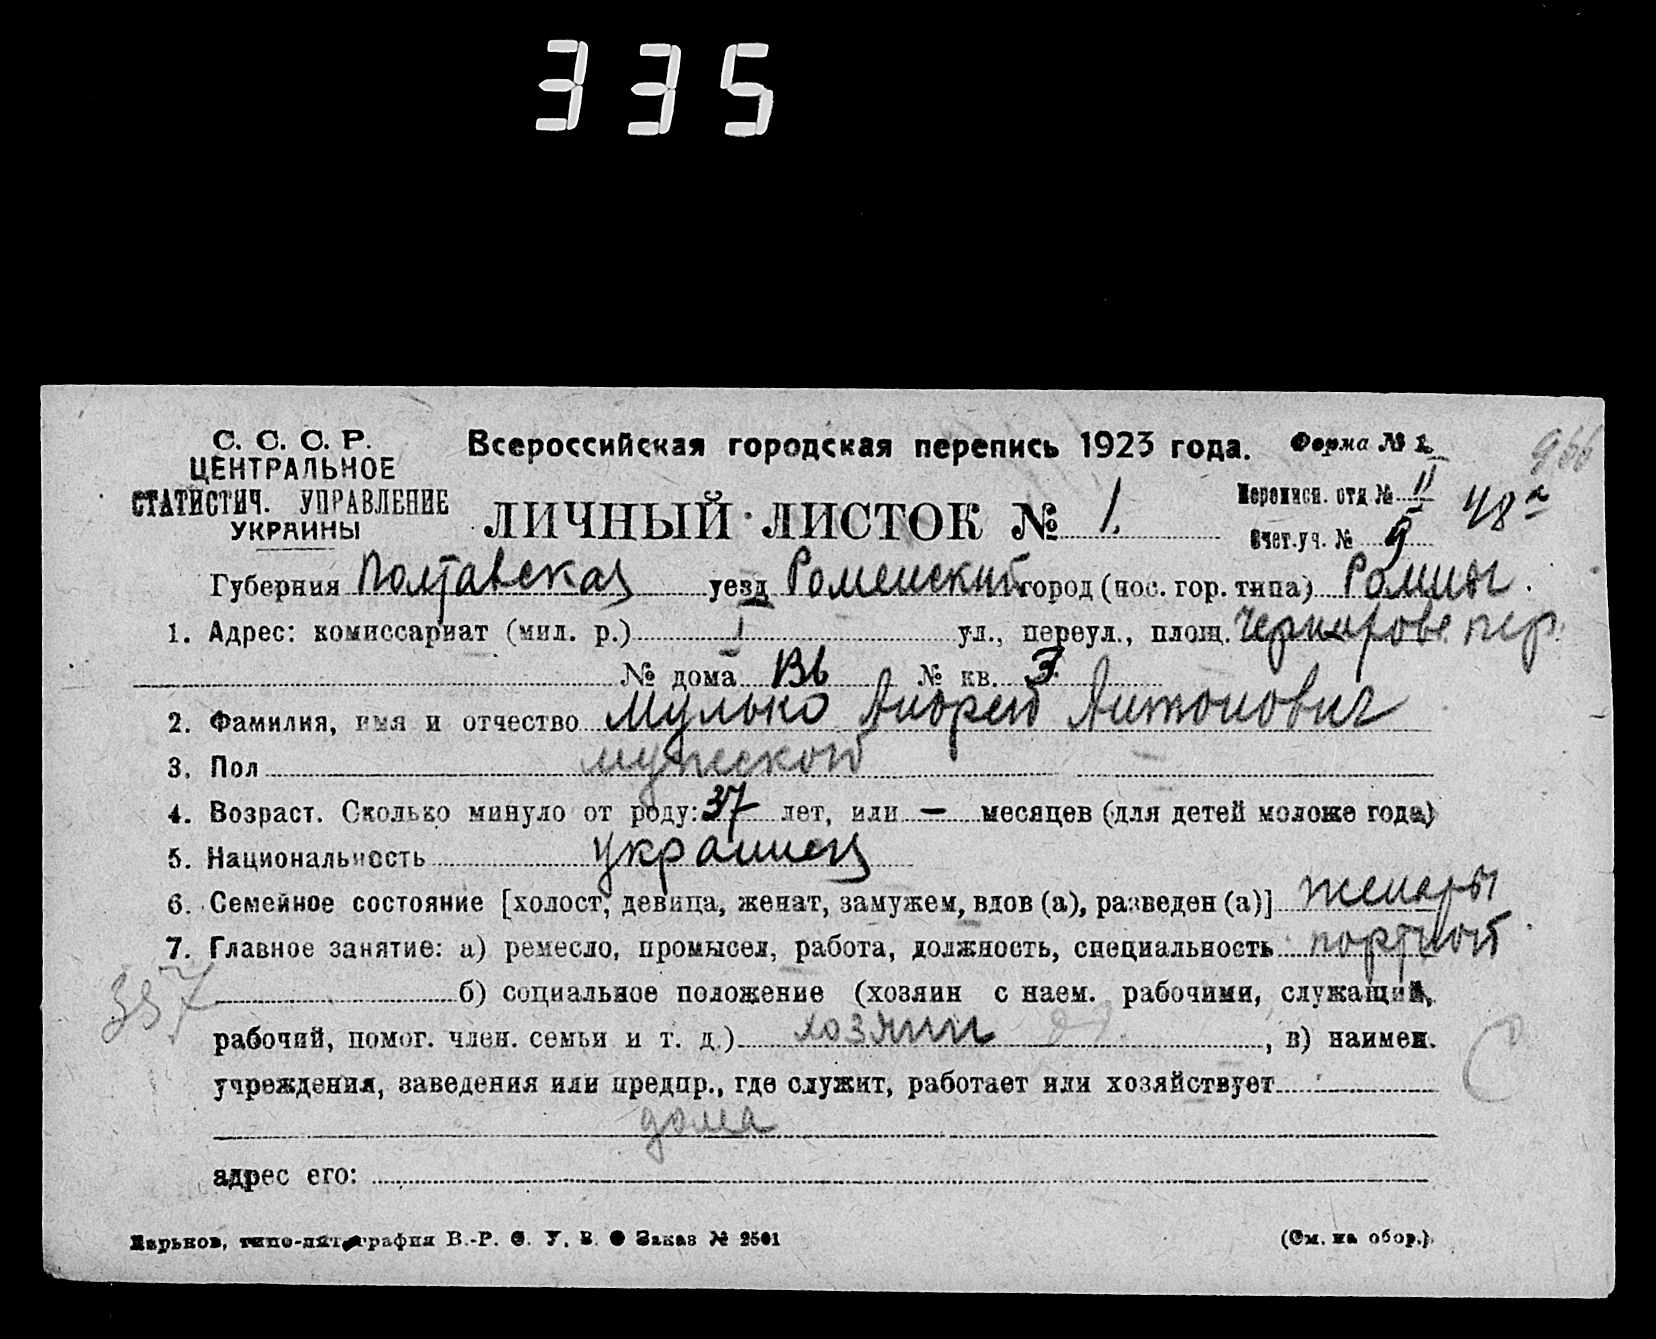 335
С. С. С. Р.
ЦЕНТРАЛЬНОЕ
СТАТИСТИЧ. УПРАВЛЕНИЕ
УКРАИНЫ
Всероссийская городская перепись 1923 года.
Форма № 1
966
ЛИЧНЫЙ ЛИСТОК № 1.
Переписн. отд № II
48
Счет. уч. № 9
Губерния Полтавская уезд Роменский город (пос. гор. типа) Ромны.
1. Адрес: комиссариат (мил. р.) I ул., переул., площ. пер.
№ дома № кв. 3
2. Фамилия, имя и отчество Мулько Андрей Антонович
3. Пол мужской
4. Возраст. Сколько минуло от роду: 37 лет, или — месяцев (для детей моложе года)
5. Национальность украинец
6. Семейное состояние [холост, девица, женат, замужем, вдов (а), разведен (а)] женаты
7. Главное занятие: а) ремесло, промысел, работа, должность, специальность портной
357
б) социальное положение (хозяин с наем. рабочими, служащий,
рабочий, помог. член. семьи и т. д.) хозяин , в) наимен.
учреждения, заведения или предпр., где служит, работает или хозяйствует
дома
адрес его:
Харьков, типо-литография В.-Р. С. У. В. Заказ № 2501
(См. на обор.)